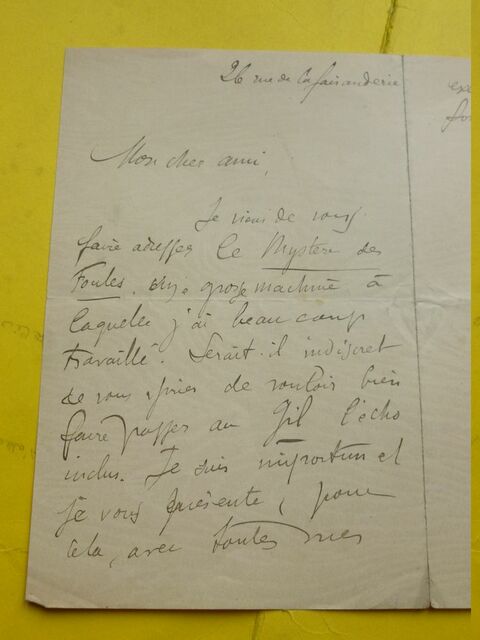 26 rue de la faisanderie
Mon cher ami,
Je viens de vous
faire adresser le Mystère des
Foules, grosse machine à
laquelle j'ai beaucoup
travaillé. Serait-il indiscret
de vous prier de vouloir bien
faire passer au Gil l'écho
inclus. Je suis importun et
je vous présente, pour
cela, avec toutes mes